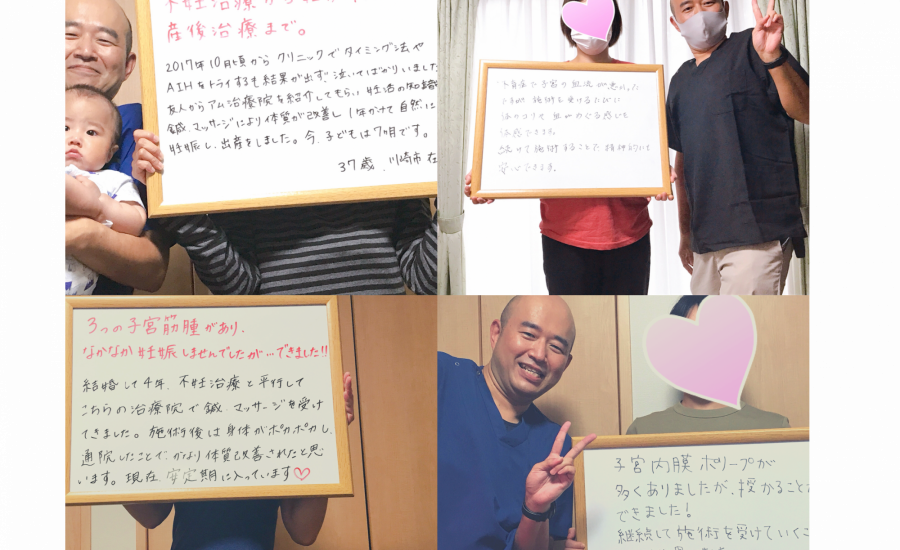 不妊治療から
産後治療まで。
2017年10月頃から クリニックでタイミング法や
AIHをトライするも結果が出ず 泣いてばかりいました
友人からアム治療院を紹介してもらい 妊活の知識
鍼、マッサージにより体質が改善し 1年かけて自然に
妊娠し、出産をしました。今、子どもは7ヶ月です。
37歳、川崎市 在
下半身と子宮の血流が悪かった
施術を受けるたびに
体のコリと血がめぐる感じを
体感できます。
続けて施術することで 精神的にも
安心できます。
3つの子宮筋腫があり、
なかなか妊娠しませんでしたが…できました!!
結婚して4年、不妊治療と平行して
こちらの治療院で鍼、マッサージを受け
てきました。施術後は身体がポカポカし、
通院したことで かなり体質改善されたと思
います。現在、安定期に入っています♡
子宮内膜ポリープが
多くありましたが、授かることが
できました!
継続して施術を受けていくこ